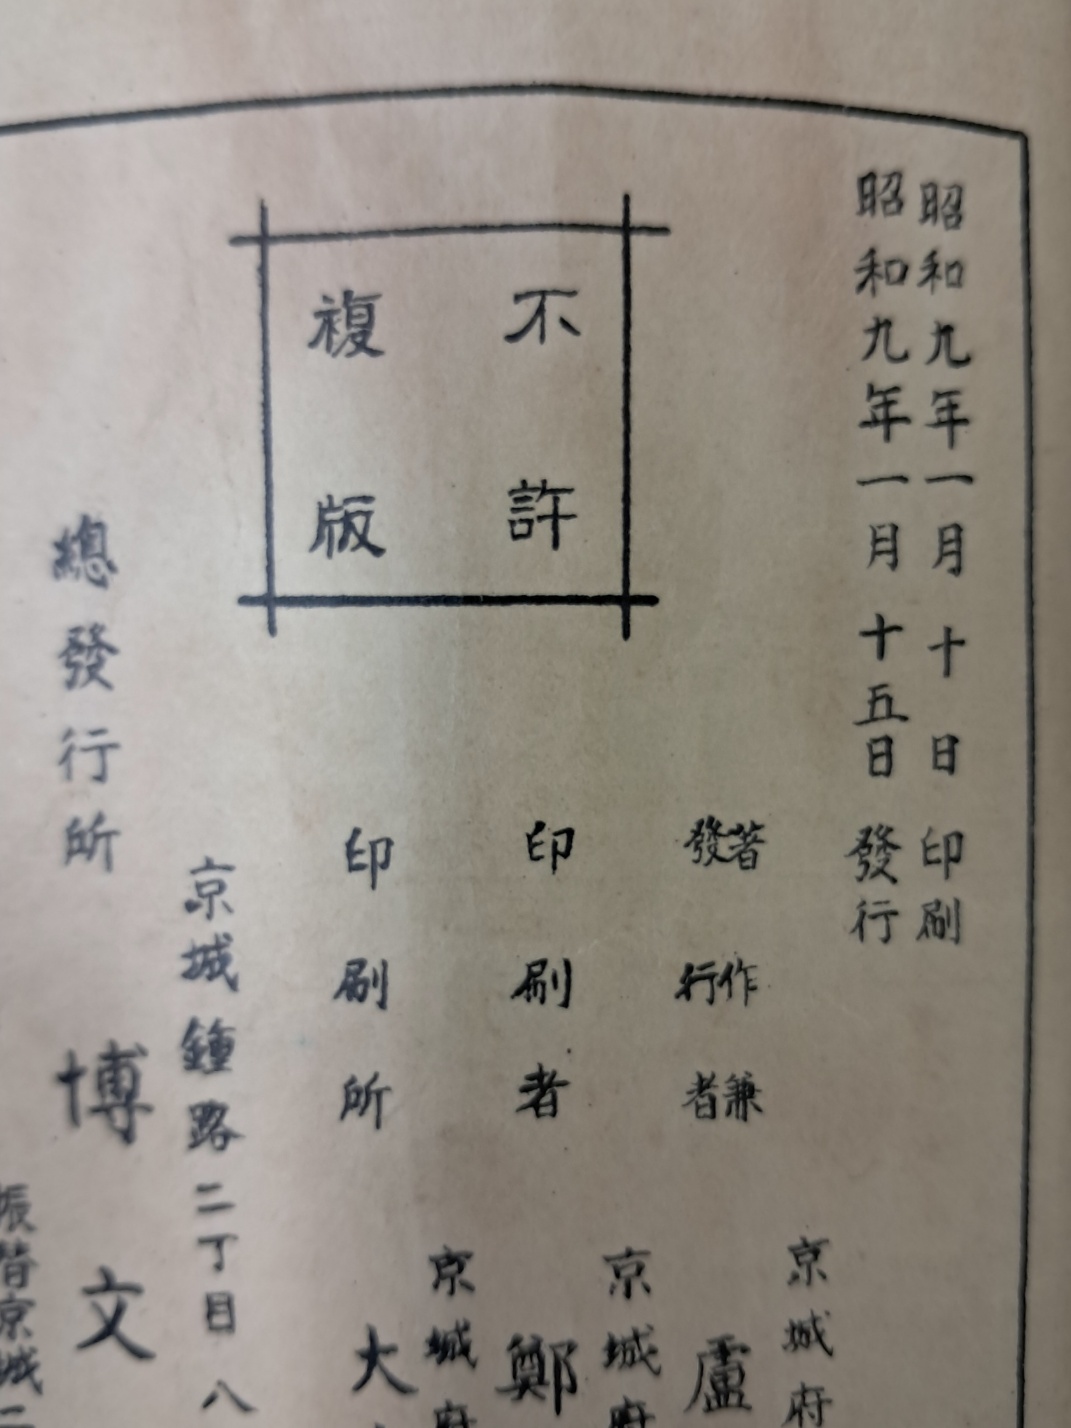 昭和九年一月十日印刷
昭和九年一月十五日發行
不許
複版
京城府
著作兼
發行者
盧
京城府
印刷者
鄭
京城府
印刷所
大
京城鍾路二丁目八
總發行所
博文
振替京城二